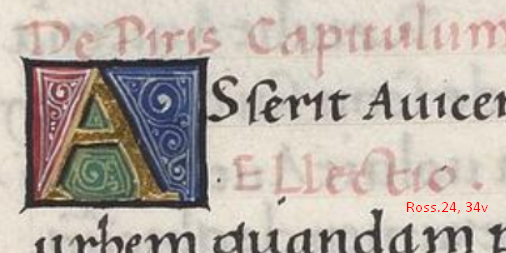 De Piris Capitulum
ASserit Auicen
.ELlectio.
urbem quandam p
Ross.24, 34v